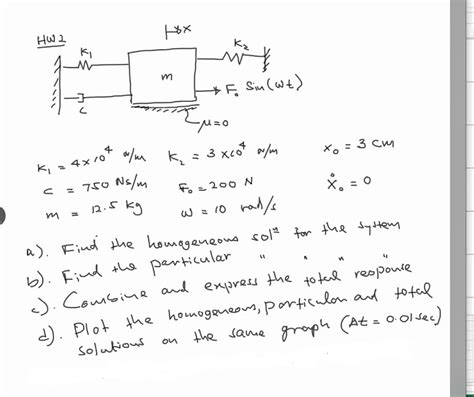 HW2
x
K₁
K₂
m
F₀ Sin(ωt)
c
μ=0
K₁ = 4×10⁴ N/m K₂ = 3×10⁴ N/m x₀ = 3 cm
c = 750 Ns/m F₀ = 200 N ẋ₀ = 0
m = 12.5 kg ω = 10 rad/s
a). Find the homogeneous solⁿ for the system
b). Find the particular " " " "
c). Combine and express the total response
d). Plot the homogeneous, particular and total
solutions on the same graph (Δt = 0.01 sec)